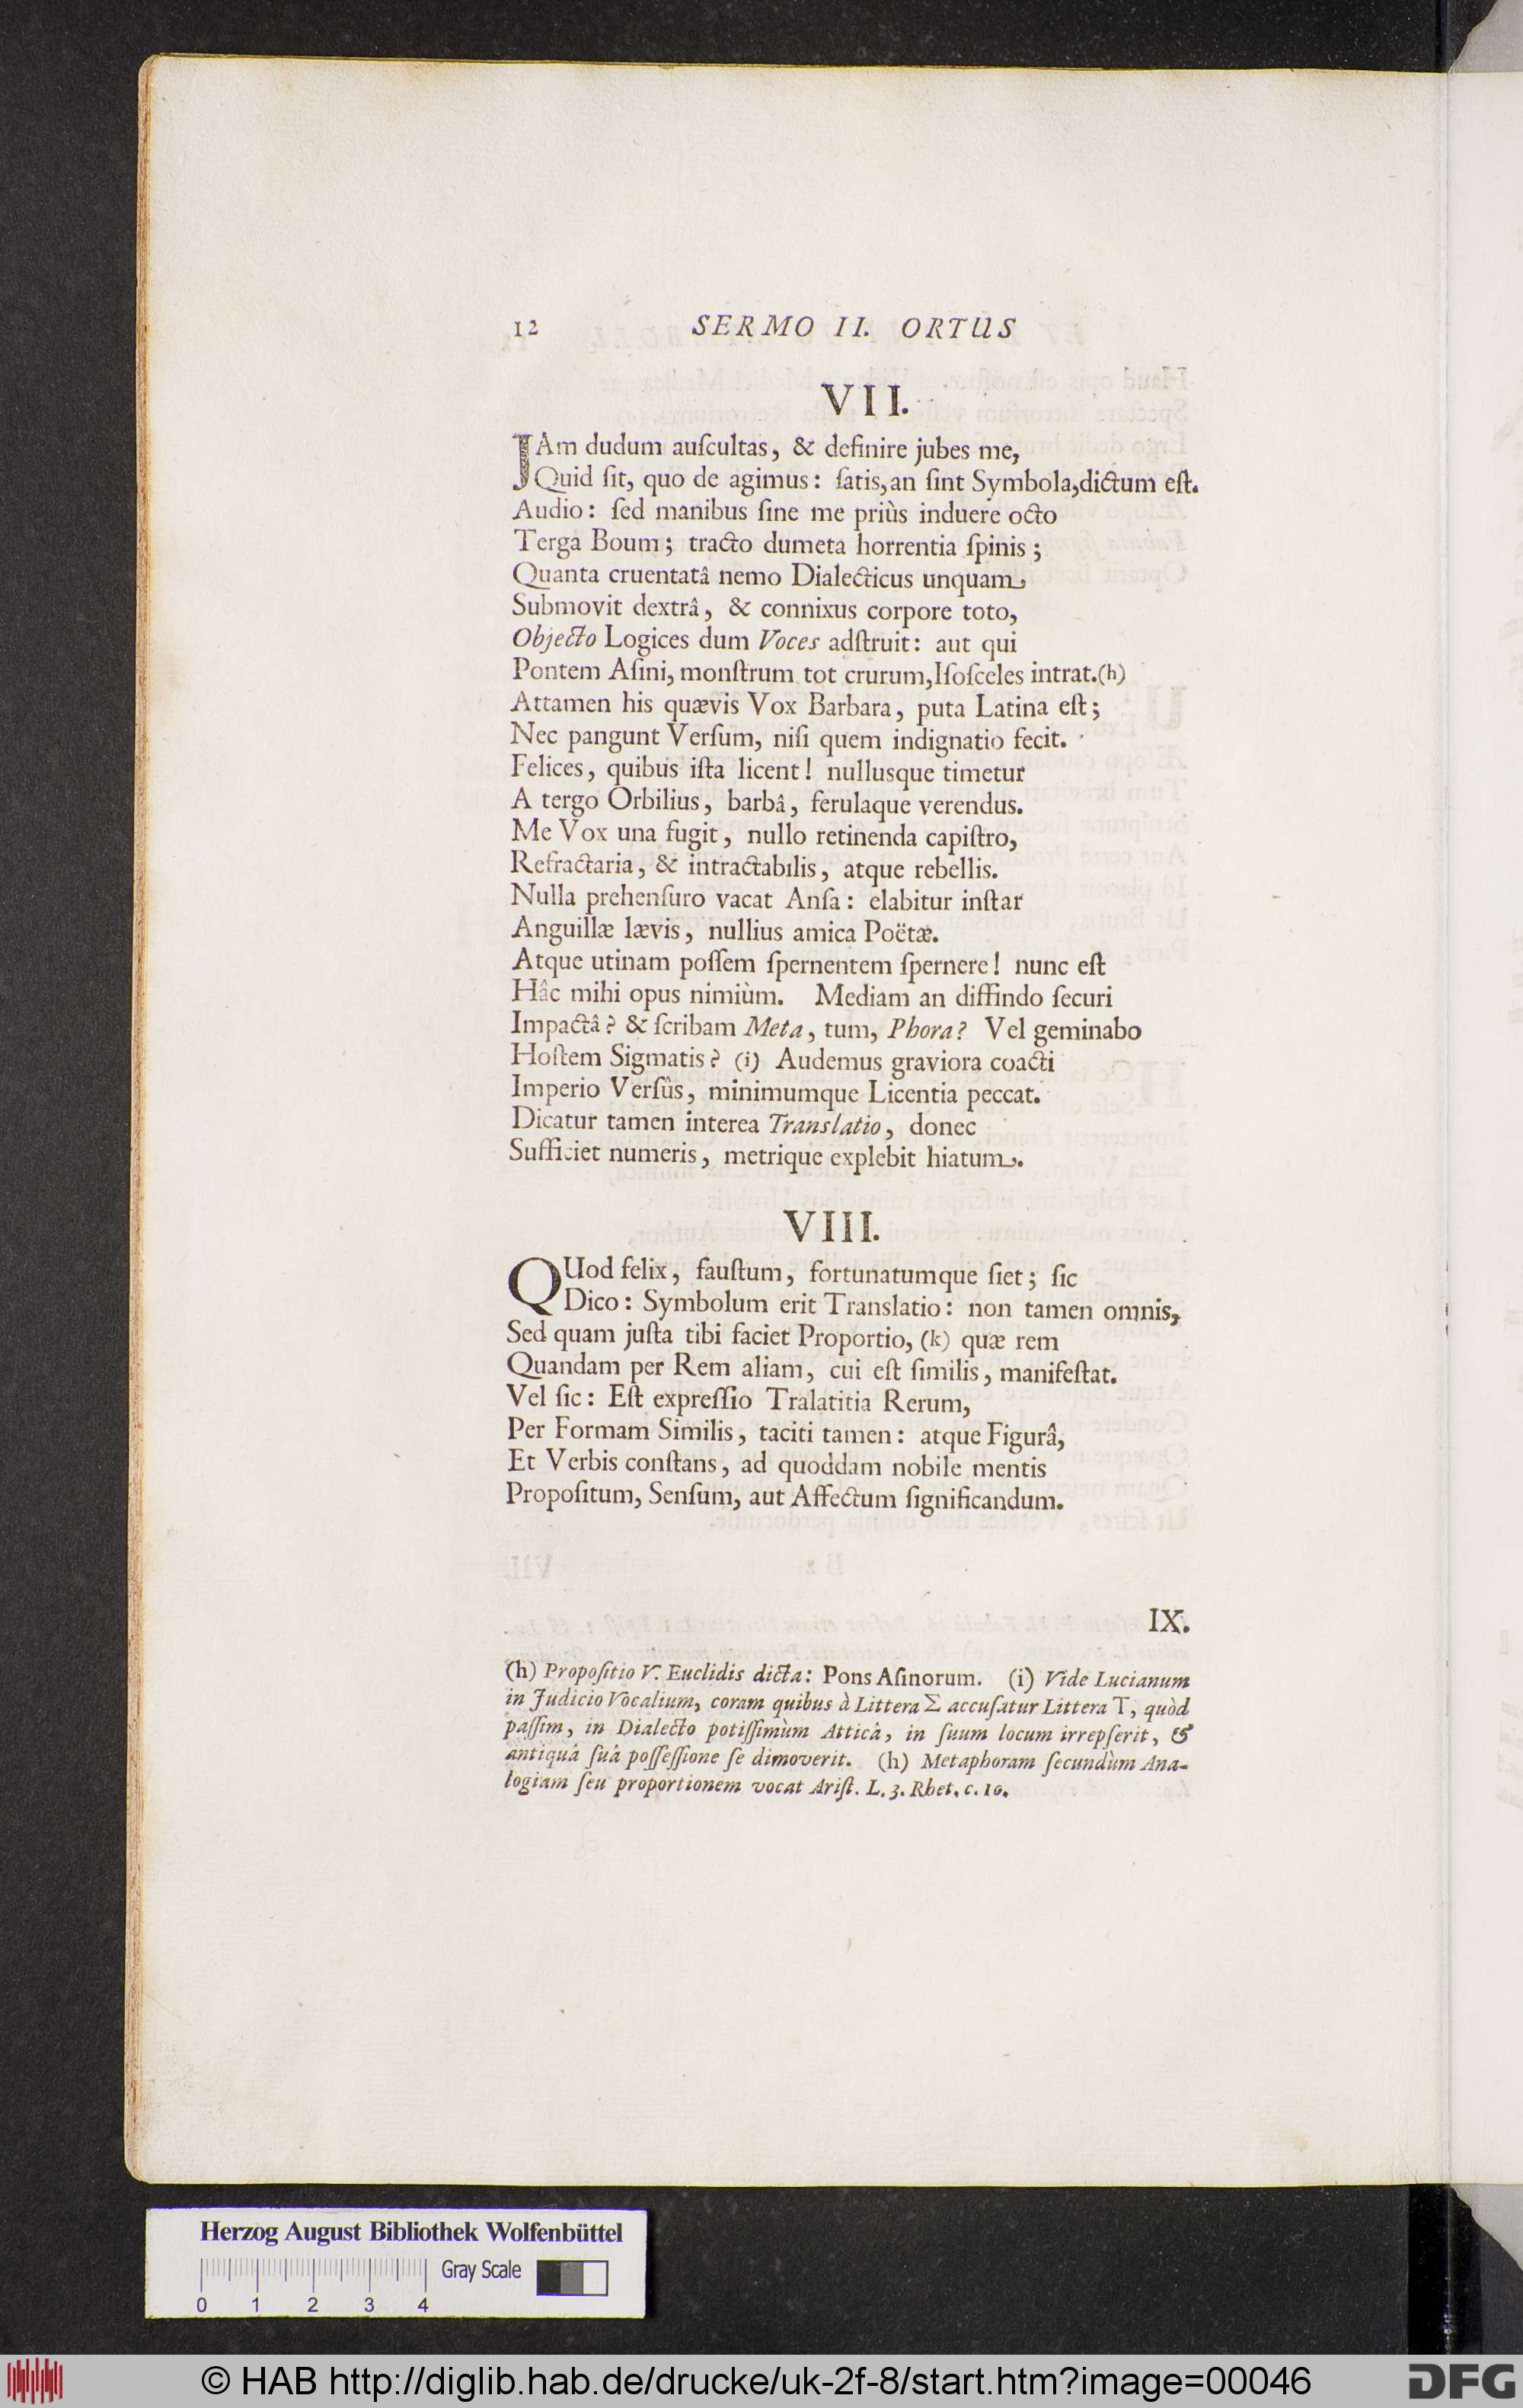 12 SERMO II. ORTUS
VII.
JAm dudum auſcultas, & definire jubes me,
Quid ſit, quo de agimus: ſatis,an ſint Symbola,dictum eſt.
Audio: ſed manibus ſine me priùs induere octo
Terga Boum; tracto dumeta horrentia ſpinis;
Quanta cruentatâ nemo Dialecticus unquam
Submovit dextrâ, & connixus corpore toto,
Objecto Logices dum Voces adſtruit: aut qui
Pontem Aſini, monſtrum tot crurum,Iſoſceles intrat.(h)
Attamen his quævis Vox Barbara, puta Latina eſt;
Nec pangunt Verſum, niſi quem indignatio fecit.
Felices, quibus iſta licent! nullusque timetur
A tergo Orbilius, barbâ, ferulaque verendus.
Me Vox una fugit, nullo retinenda capiſtro,
Refractaria, & intractabilis, atque rebellis.
Nulla prehenſuro vacat Anſa: elabitur inſtar
Anguillæ lævis, nullius amica Poëtæ.
Atque utinam poſſem ſpernentem ſpernere! nunc eſt
Hâc mihi opus nimiùm. Mediam an diffindo ſecuri
Impactâ? & ſcribam Meta, tum, Phora? Vel geminabo
Hoſtem Sigmatis? (i) Audemus graviora coacti
Imperio Verſûs, minimumque Licentia peccat.
Dicatur tamen interea Translatio, donec
Sufficiet numeris, metrique explebit hiatum.
VIII.
QUod felix, fauſtum, fortunatumque ſiet; ſic
Dico: Symbolum erit Translatio: non tamen omnis,
Sed quam juſta tibi faciet Proportio, (k) quæ rem
Quandam per Rem aliam, cui eſt ſimilis, manifeſtat.
Vel ſic: Eſt expreſſio Tralatitia Rerum,
Per Formam Similis, taciti tamen: atque Figurâ,
Et Verbis conſtans, ad quoddam nobile mentis
Propoſitum, Senſum, aut Affectum ſignificandum.
IX.
(h) Propoſitio V. Euclidis dicta: Pons Aſinorum. (i) Vide Lucianum
in Judicio Vocalium, coram quibus à Littera Σ accuſatur Littera T, quòd
paſſim, in Dialecto potiſſimùm Atticâ, in ſuum locum irrepſerit, &
antiquâ ſuâ poſſeſſione ſe dimoverit. (h) Metaphoram ſecundùm Ana-
logiam ſeu proportionem vocat Ariſt. L. 3. Rhet. c. 10.
Herzog August Bibliothek Wolfenbüttel
Gray Scale
0 1 2 3 4
© HAB http://diglib.hab.de/drucke/uk-2f-8/start.htm?image=00046
DFG